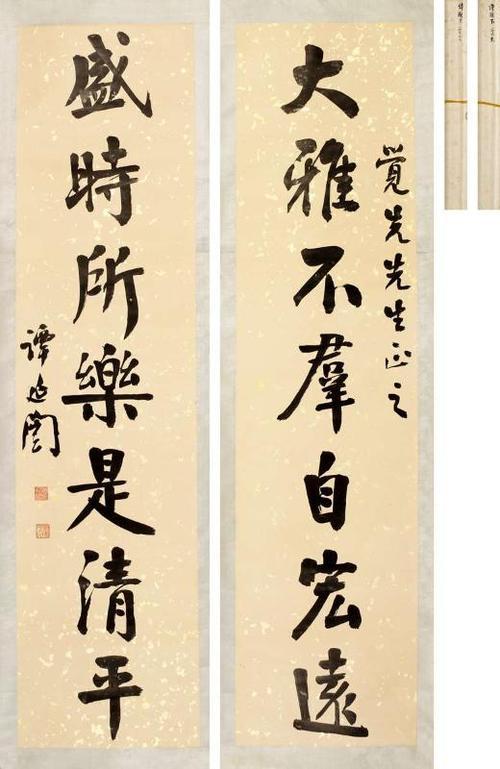 大雅不羣自宏遠
覺先先生正之
盛時所樂是清平
譚延闓